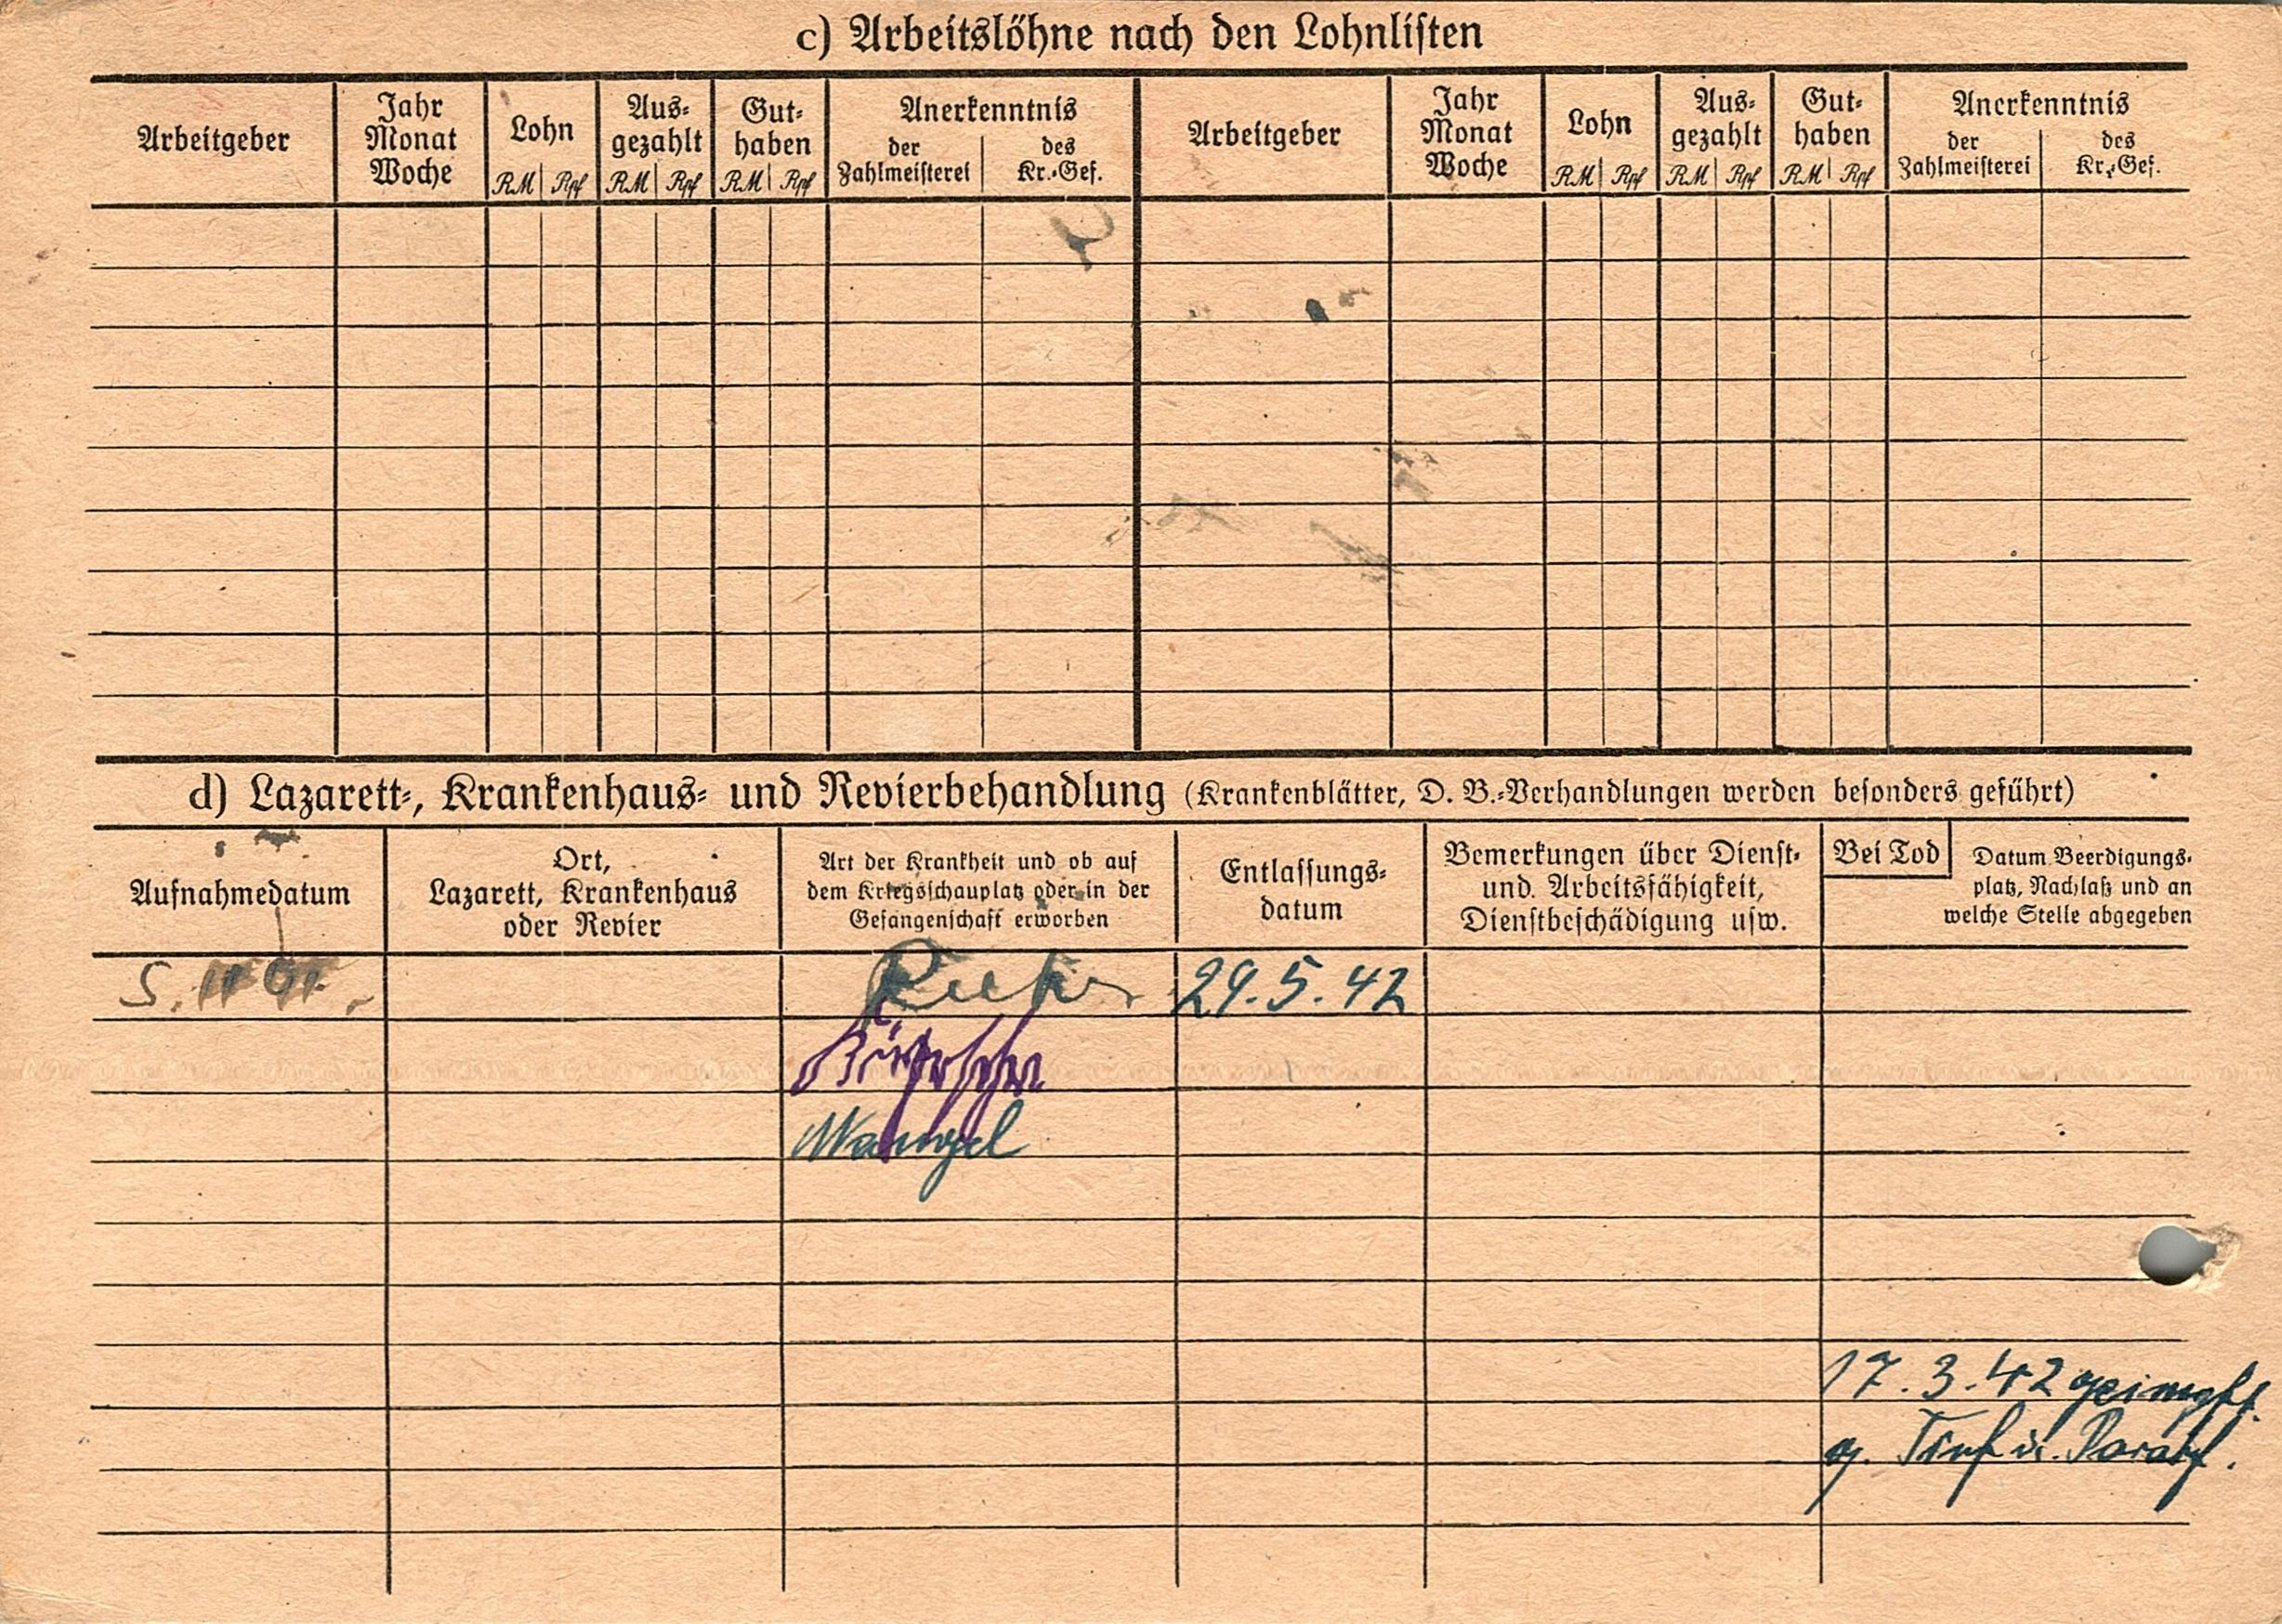 c) Arbeitslöhne nach den Lohnlisten
Arbeitgeber
Jahr
Monat
Woche
Lohn
RM Rpf
Aus-
gezahlt
RM Rpf
Gut-
haben
RM Rpf
Anerkenntnis
der
Zahlmeisterei
des
Kr.-Gef.
Arbeitgeber
Jahr
Monat
Woche
Lohn
RM Rpf
Aus-
gezahlt
RM Rpf
Gut-
haben
RM Rpf
Anerkenntnis
der
Zahlmeisterei
des
Kr.-Gef.
d) Lazarett-, Krankenhaus- und Revierbehandlung (Krankenblätter, D. B.-Verhandlungen werden besonders geführt)
Aufnahmedatum
Ort,
Lazarett, Krankenhaus
oder Revier
Art der Krankheit und ob auf
dem Kriegsschauplatz oder in der
Gefangenschaft erworben
Entlassungs-
datum
Bemerkungen über Dienst-
und Arbeitsfähigkeit,
Dienstbeschädigung usw.
Bei Tod
Datum Beerdigungs-
platz, Nachlaß und an
welche Stelle abgegeben
29.5.42
17.3.42 geimpft
g. u. Paratyf.